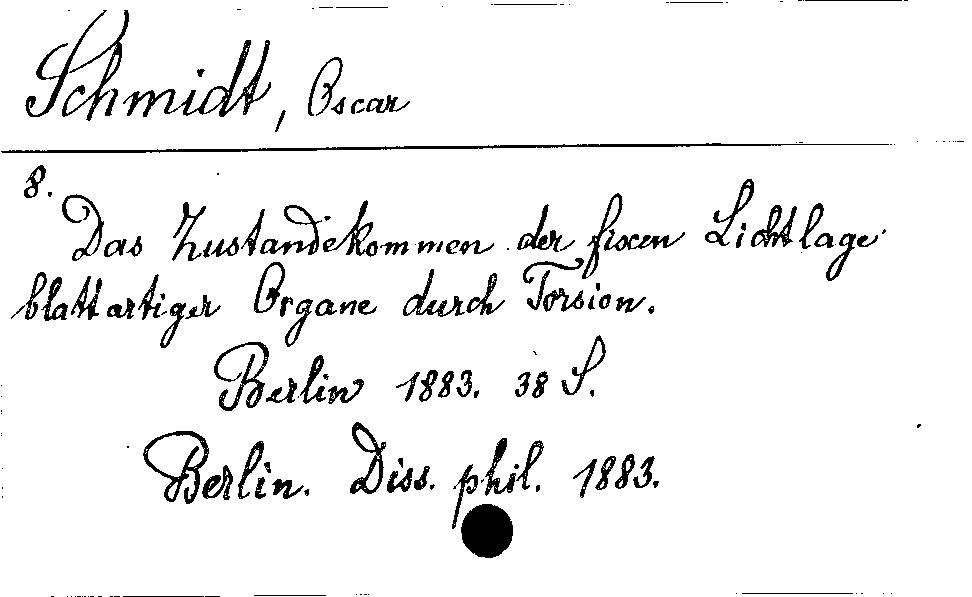 Schmidt, Oscar
8.
Das Zustandekommen der fixen Lichtlage
blattartiger Organe durch Torsion.
Berlin 1883. 38 S.
Berlin. Diss. phil. 1883.